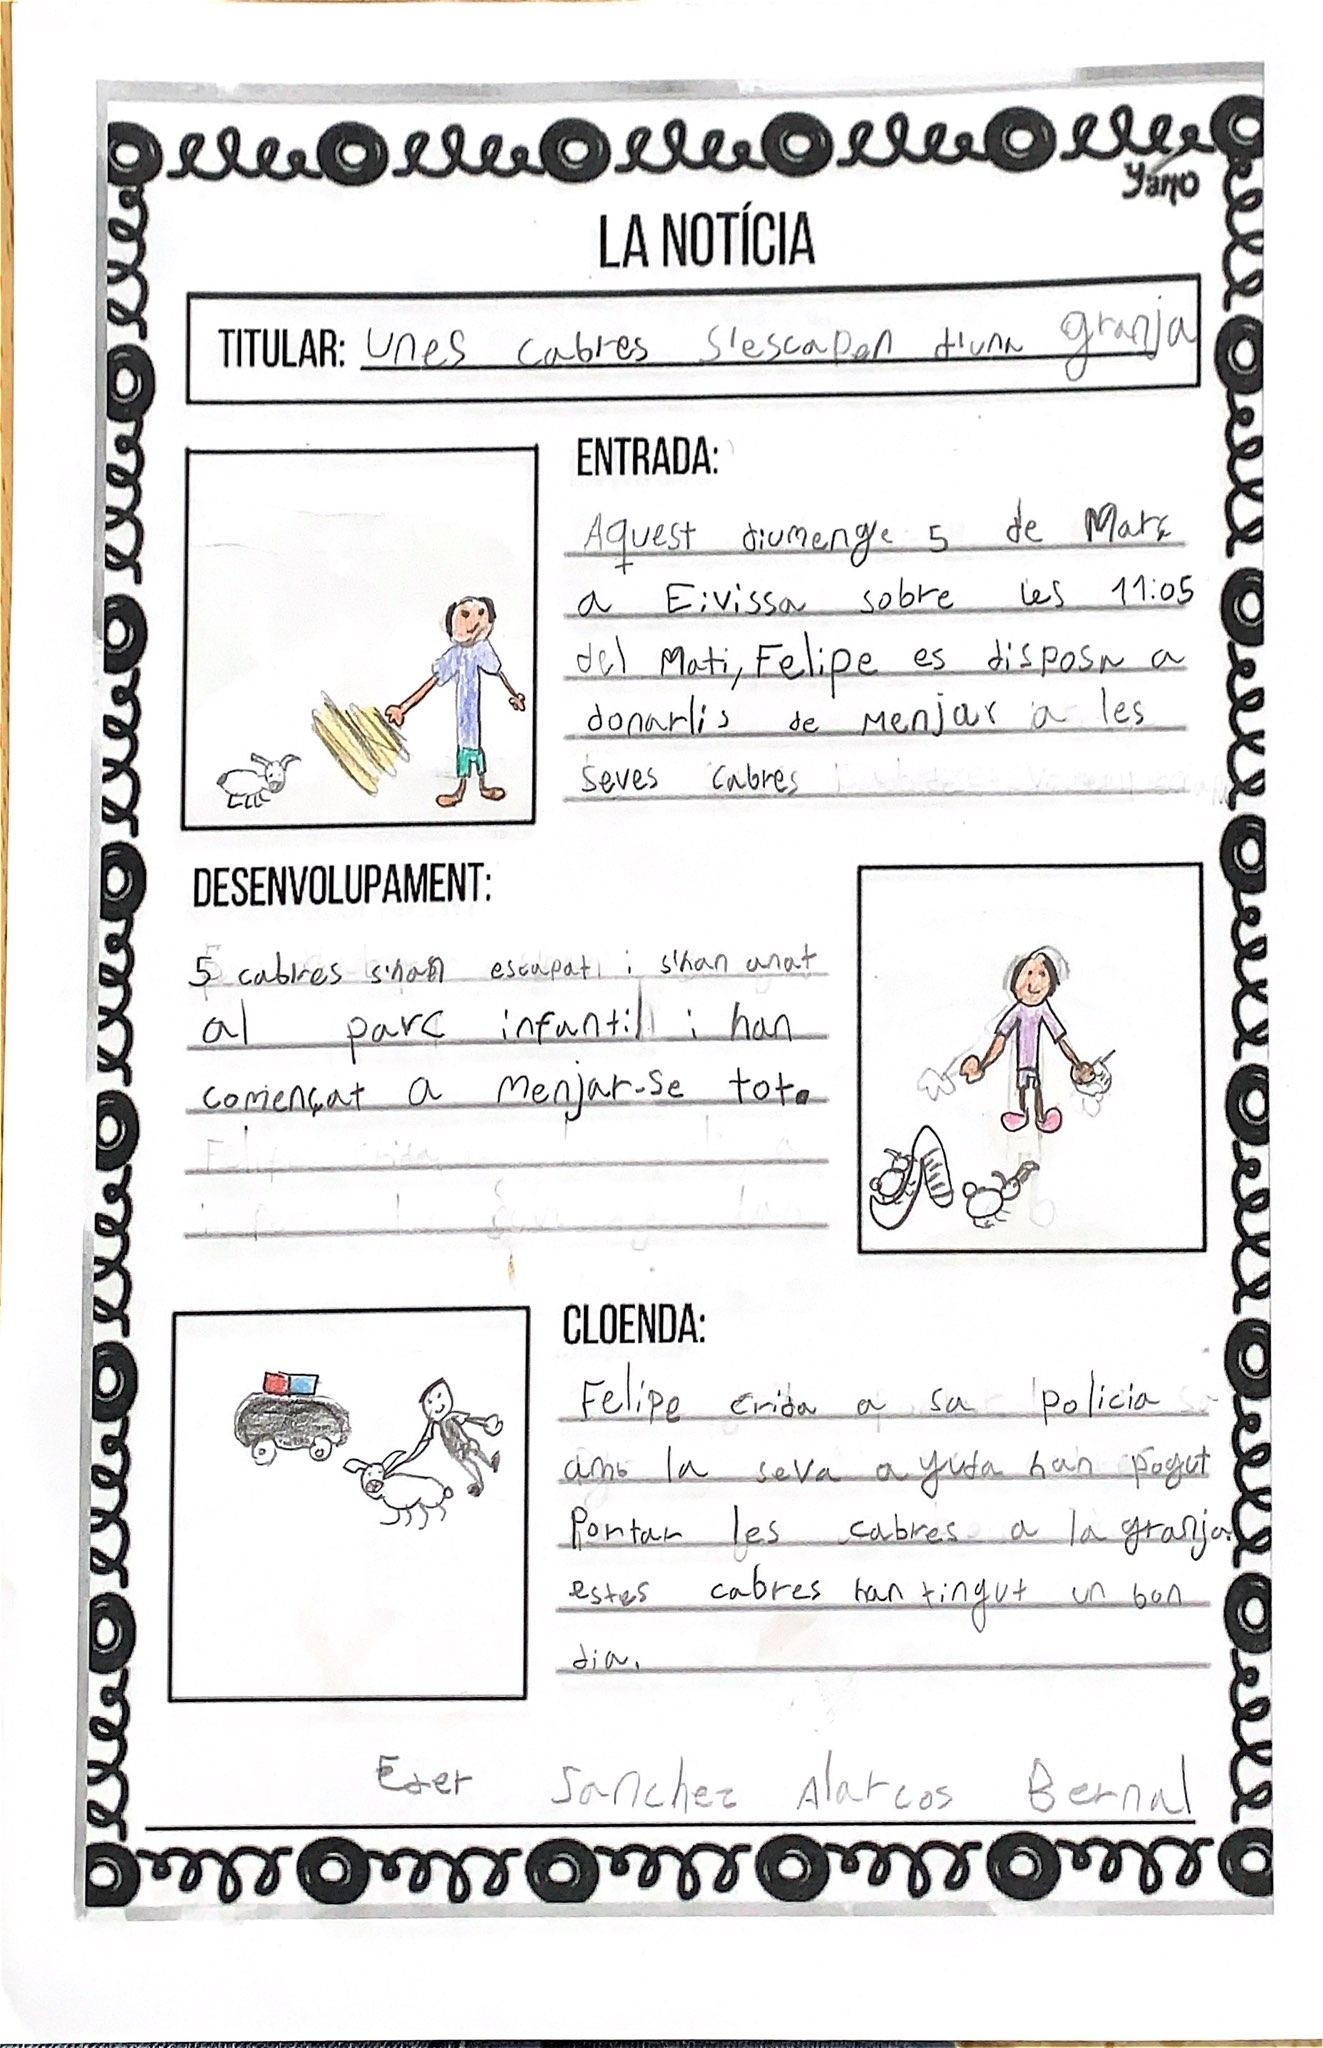 Yamo
LA NOTÍCIA
TITULAR: unes cabres s'escapen d'una granja
ENTRADA:
Aquest diumenge 5 de Març
a Eivissa sobre les 11:05
del Mati, Felipe es disposa a
donarlis de Menjar a les
seves cabres
DESENVOLUPAMENT:
5 cabres s'han escapat i s'han anat
al parc infantil i han
començat a Menjar-se tot.
CLOENDA:
Felipe crida a sa policia
amb la seva ayuda han pogut
Portar les cabres a la granja.
estes cabres han tingut un bon
dia.
Eder Sanchez Alarcos Bernal